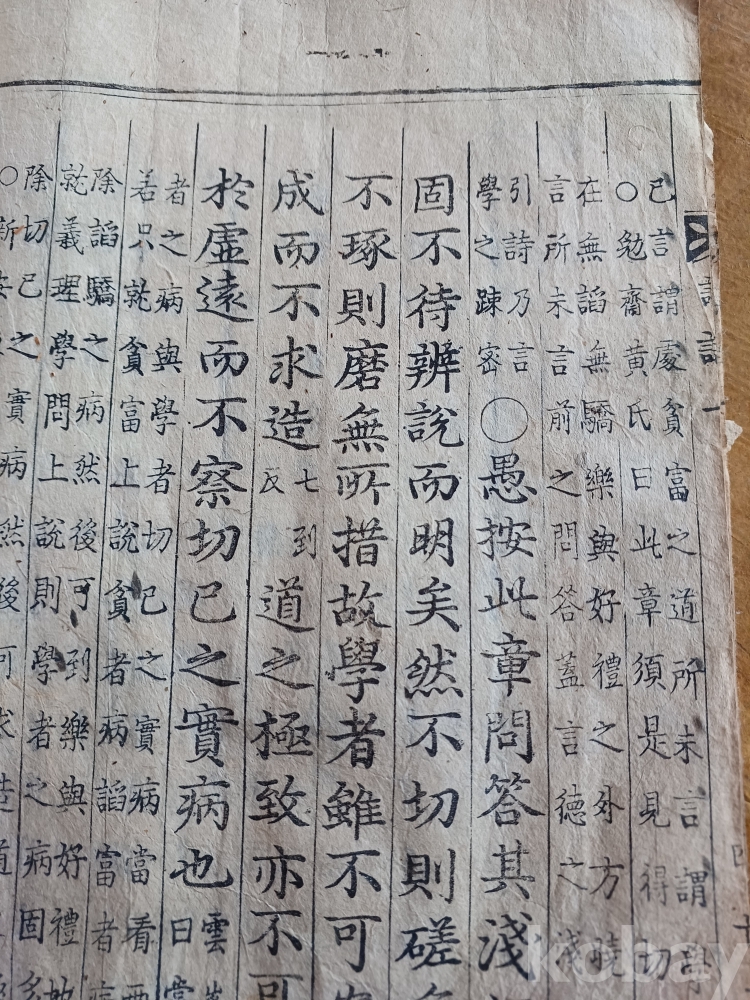 論語一
已言謂處貧富之道所未言謂學
○勉齋黃氏曰此章須是見得切
在無諂無驕樂與好禮之外方曉
言所未言前之問答蓋言德之淺
引詩乃言
學之踈密
○愚按此章問答其淺
固不待辨說而明矣然不切則磋
不琢則磨無所措故學者雖不可
成而不求造七到反道之極致亦不可
於虛遠而不察切已之實病也
雲
曰當
者之病與學者切已之實病當看
若只就貧富上說貧者病諂富者病
除諂驕之病然後可到樂與好禮
就義理學問上說則學者之病固多
除切已之實病然後可求造道
○新安
kobay